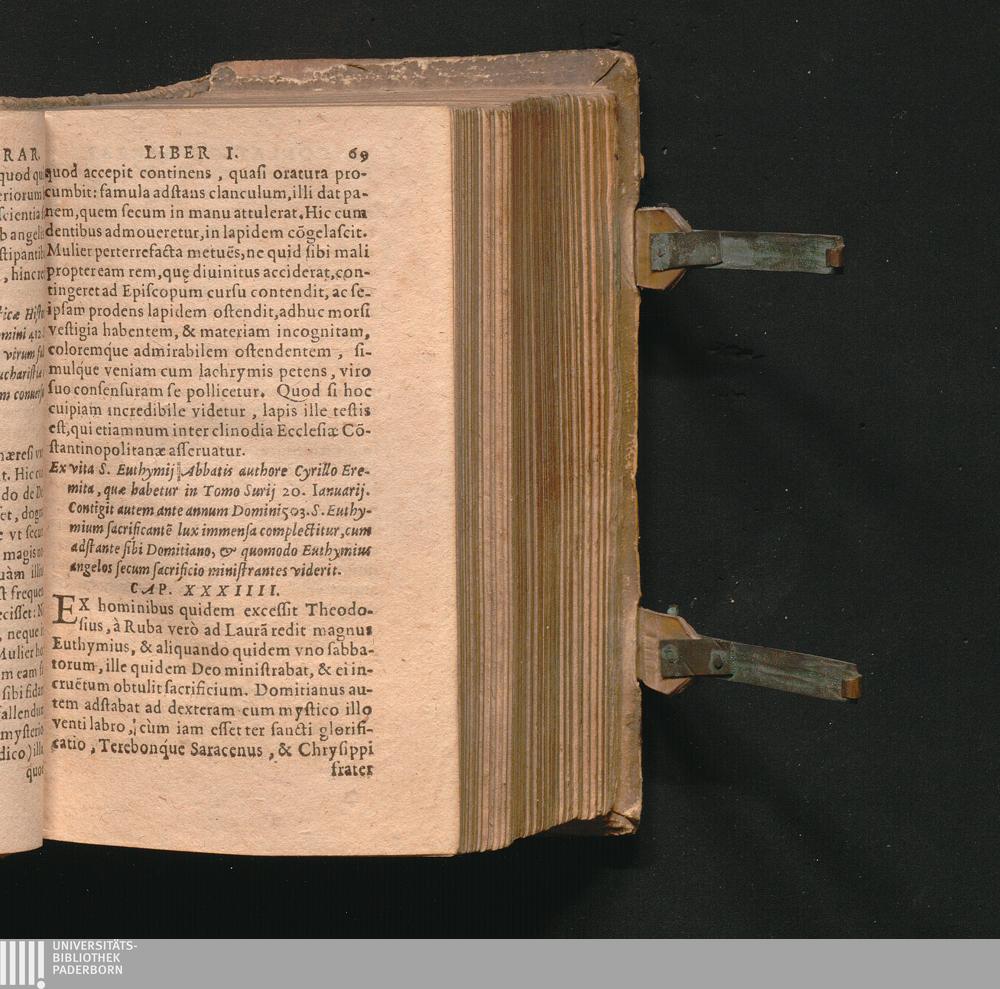 RAR.
quod
eriorum
scientia
b angeli
stipanti
, hinc
icæ
mini
virum
ucharisti
m
hæresi
t. Hic
do de
set, dog
vt secu
magis
uàm illi
st freque
ecisset:
, neque
Mulier
m eam
sibi
fallendu
mysterio
dico) ill
quo
LIBER I. 69
quod accepit continens, quasi oratura pro-
cumbit: famula adstans clanculum, illi dat pa-
nem, quem secum in manu attulerat. Hic cum
dentibus admoueretur, in lapidem cõgelascit.
Mulier perterrefacta metuẽs, ne quid sibi mali
propter eam rem, quę diuinitus acciderat, con-
tingeret ad Episcopum cursu contendit, ac se-
ipsam prodens lapidem ostendit, adhuc morsi
vestigia habentem, & materiam incognitam,
coloremq́ue admirabilem ostendentem, si-
mulq́ue veniam cum lachrymis petens, viro
suo consensuram se pollicetur. Quod si hoc
cuipiam incredibile videtur, lapis ille testis
est, qui etiamnum inter clinodia Ecclesiæ Cõ-
stantinopolitanæ asseruatur.
Ex vita S. Euthymij Abbatis authore Cyrillo Ere-
mita, quæ habetur in Tomo Surij 20. Ianuarij.
Contigit autem ante annum Domini 503. S. Euthy-
mium sacrificantẽ lux immensa complectitur, cum
adstante sibi Domitiano, & quomodo Euthymius
angelos secum sacrificio ministrantes viderit.
CAP. XXXIIII.
EX hominibus quidem excessit Theodo-
sius, à Ruba verò ad Laurã redit magnus
Euthymius, & aliquando quidem vno sabba-
torum, ille quidem Deo ministrabat, & ei in-
cruẽtum obtulit sacrificium. Domitianus au-
tem adstabat ad dexteram cum mystico illo
venti labro, cùm iam esset ter sancti glorifi-
catio, Terebonq́ue Saracenus, & Chrysippi
frater
UNIVERSITÄTS-
BIBLIOTHEK
PADERBORN